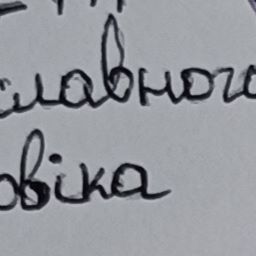 славного
овіка